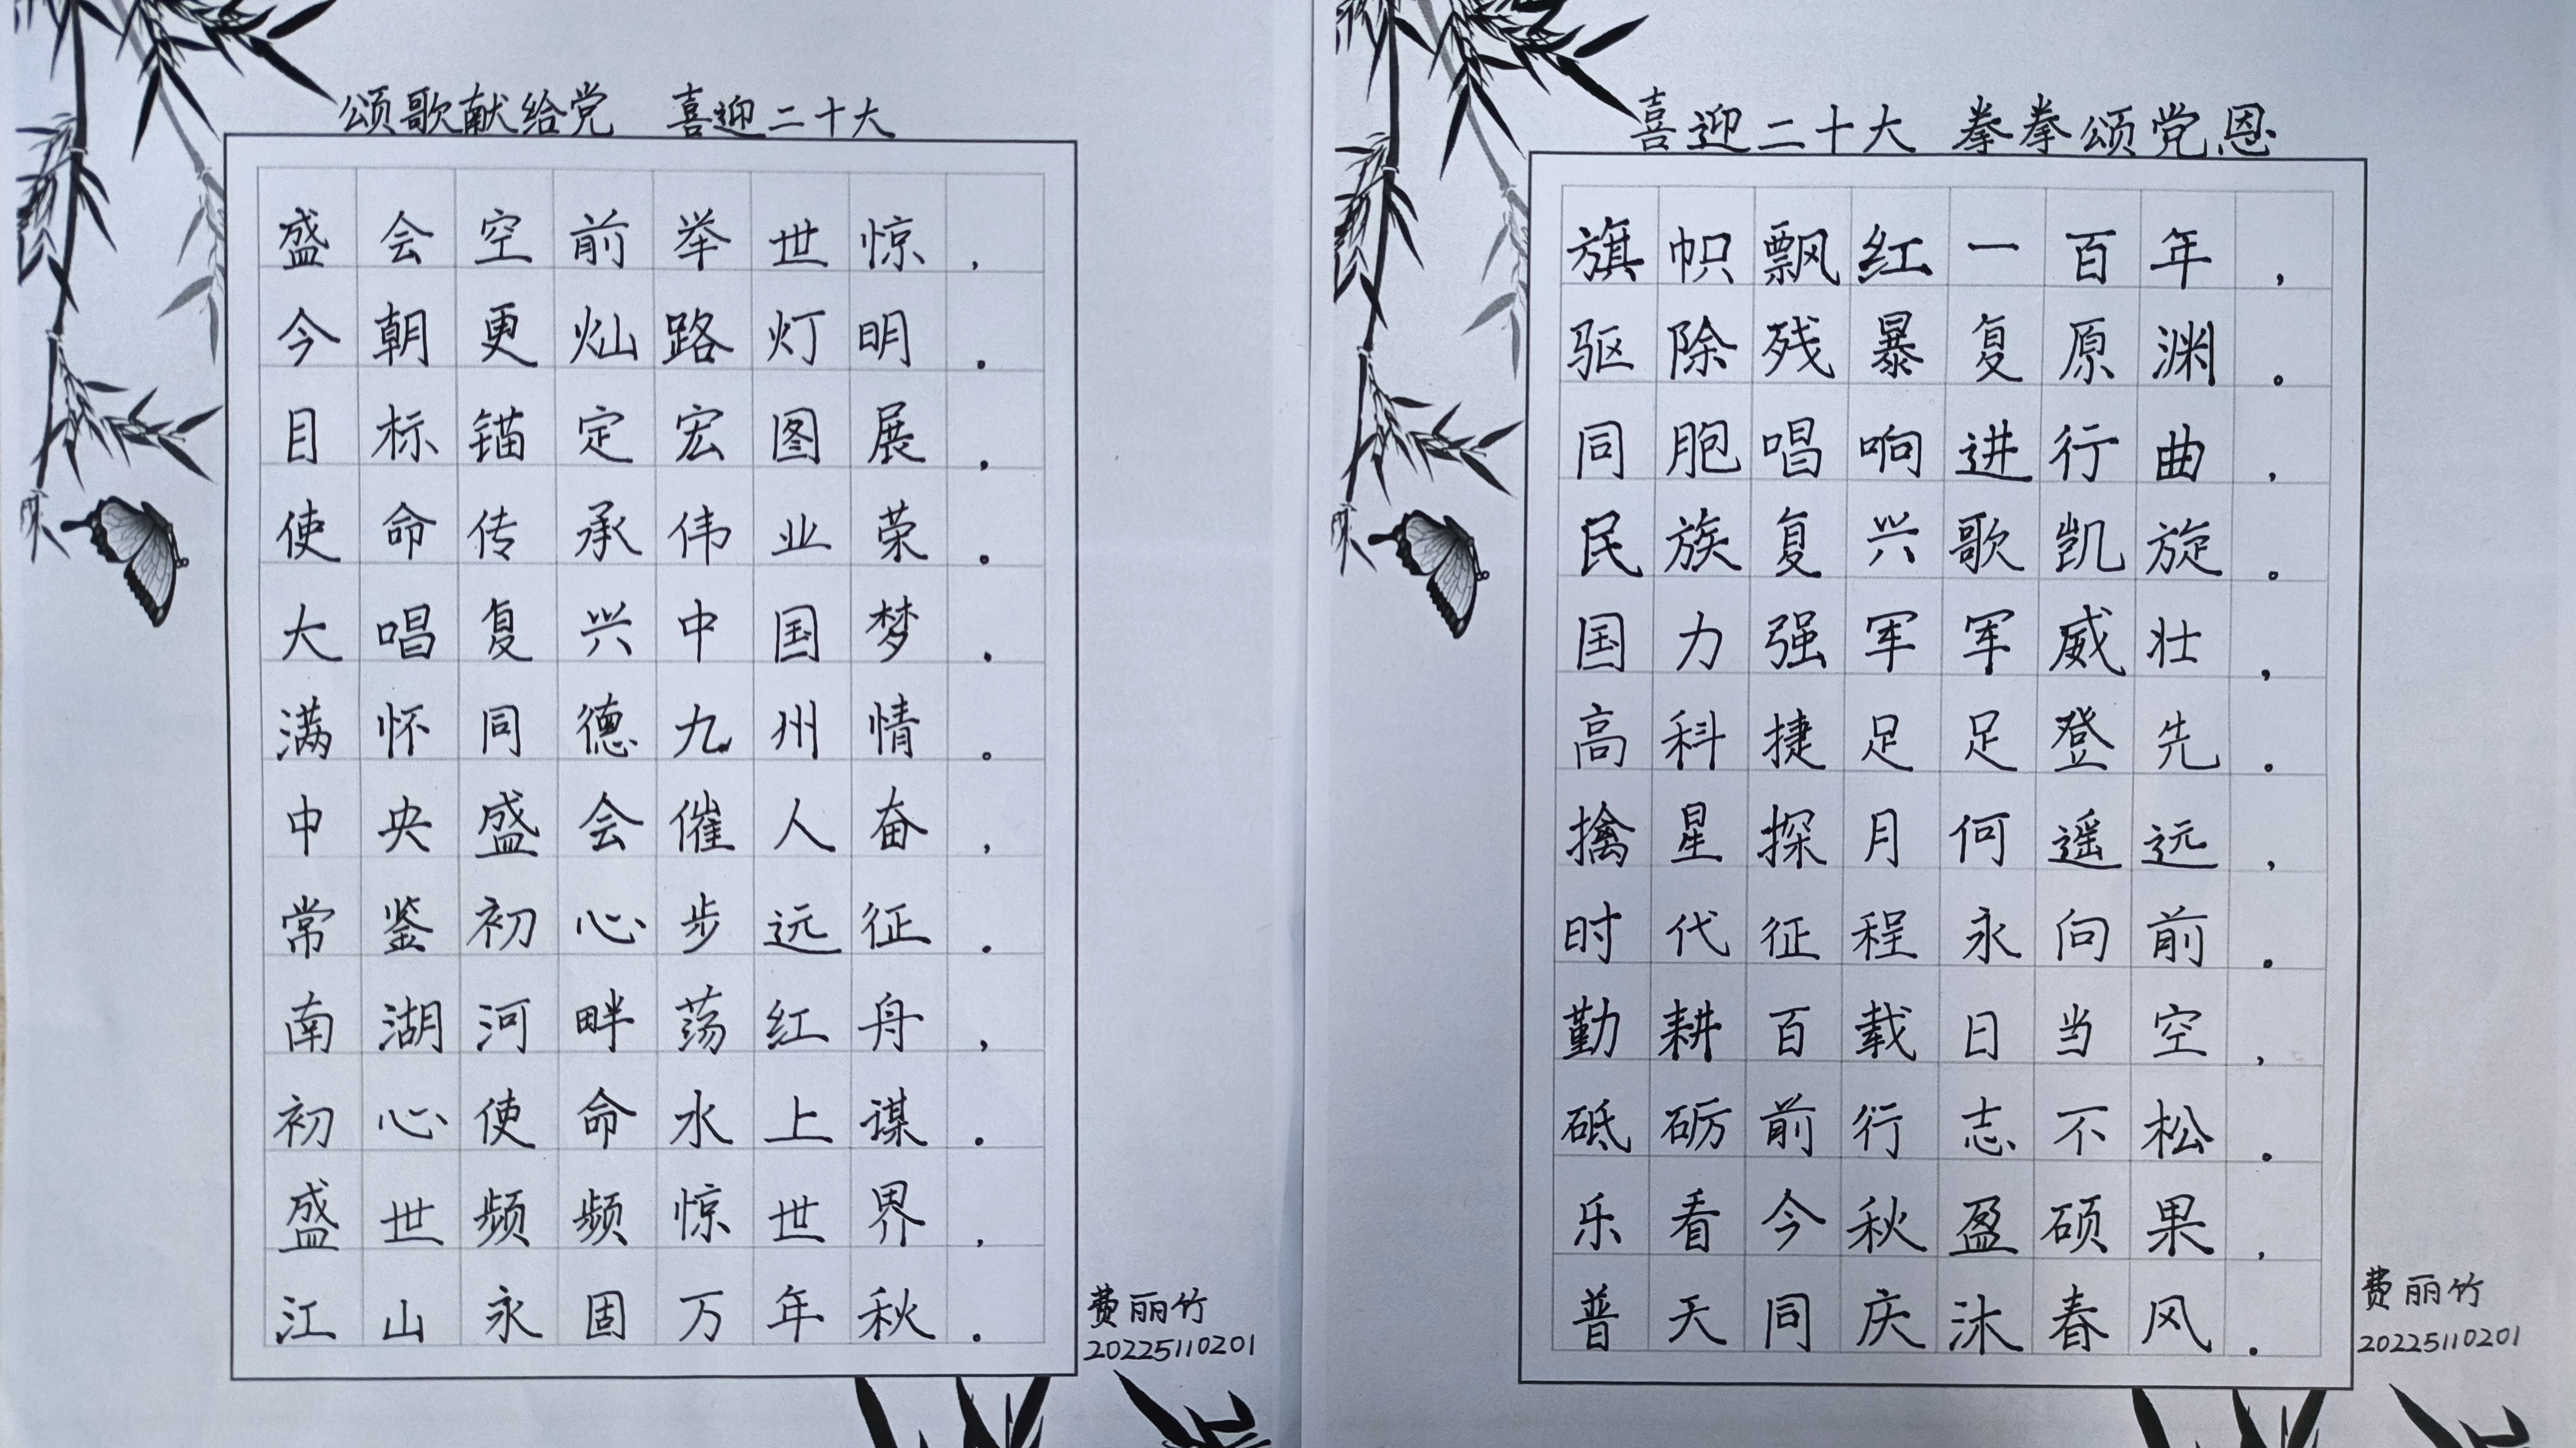 颂歌献给党 喜迎二十大
盛会空前举世惊,
今朝更灿路灯明.
目标锚定宏图展,
使命传承伟业荣。
大唱复兴中国梦.
满怀同德九州情。
中央盛会催人奋,
常鉴初心步远征.
南湖河畔荡红舟,
初心使命水上谋.
盛世频频惊世界,
江山永固万年秋.
费丽竹
20225110201
喜迎二十大 拳拳颂党恩
旗帜飘红一百年,
驱除残暴复原渊。
同胞唱响进行曲,
民族复兴歌凯旋。
国力强军军威壮,
高科捷足足登先.
擒星探月何遥远,
时代征程永向前.
勤耕百载日当空,
砥砺前行志不松.
乐看今秋盈硕果,
普天同庆沐春风.
费丽竹
20225110201